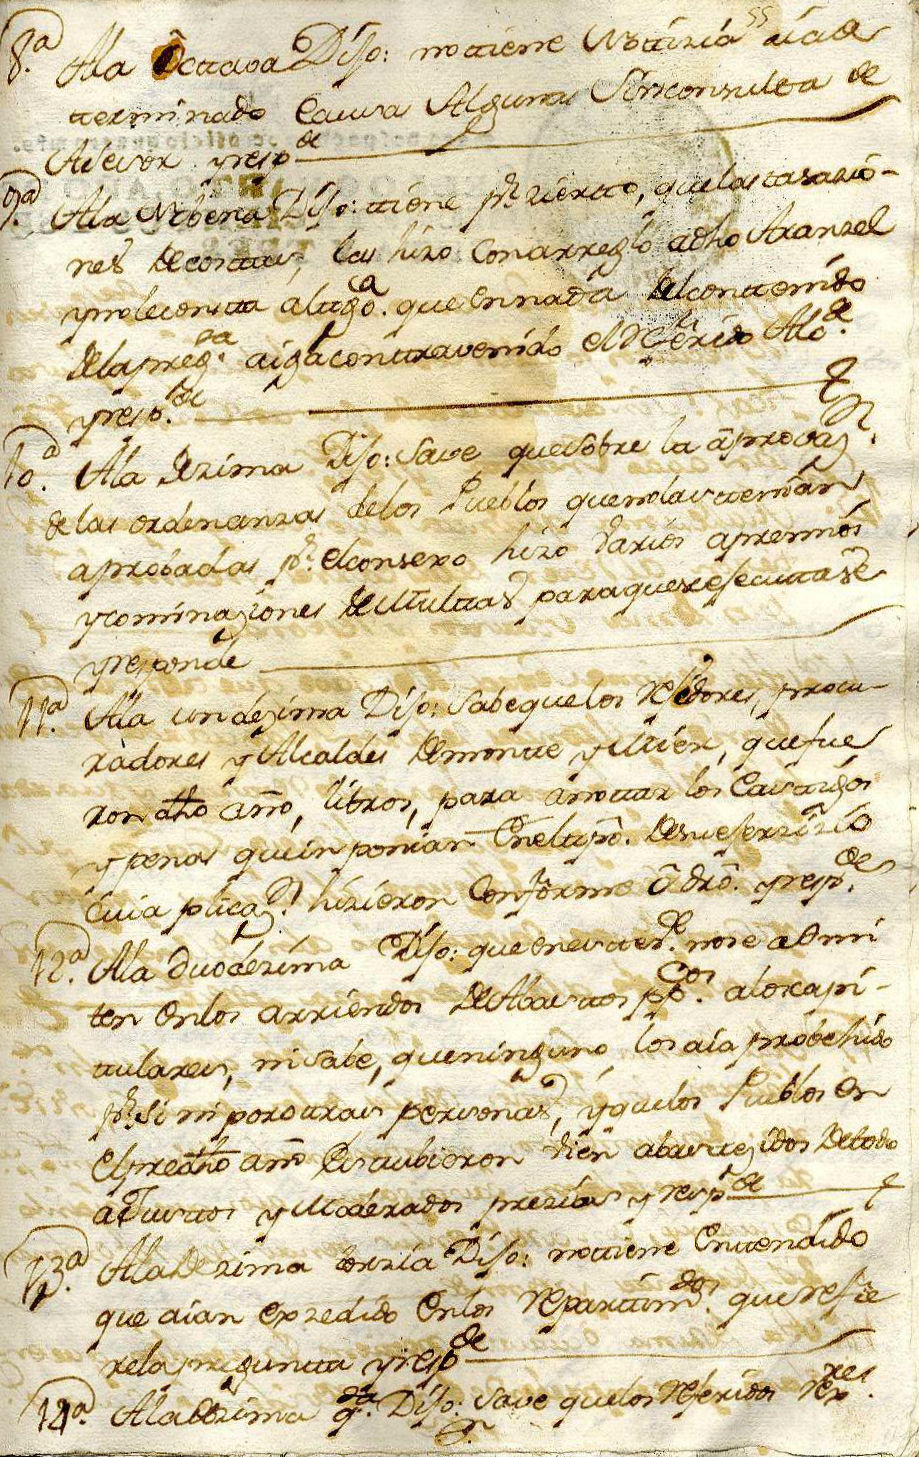 55
8.ª Ala Octaua Dijo: no ttiene Nottizia aia de
terminado Causa Alguna Sin consulta de
Asesor y resp.de
9.ª Ala Nobena Dijo: ttiene p.r zierto, que las tasazio-
nes de costtas, las hizo con arreglo a dho Aranzel
y no le consta a el tt.go que en nada del contenido
de la preg.ta aiga contravenido el Referido Al.de
y resp.de
10.ª Ala Dezima Dijo: Save que sobre la aprovaz.n
de las ordenanzas de los Pueblos que no las tenian
aprobadas p.r el consexo hizo varios apremios
y cominaziones de Multtas para que se ejecuttase
y responde
11.ª Ala undezima Dijo: Sabe que los Rejidores, procu-
radores y Alcaldes de montte y Mier, que fue
ron dho año, libros, para anottar los Casttigos
y penas que inponian En el tpo. de su ejerzizio
cuia plicaz.n hizieron Conforme a dro. y resp.de
12.ª Ala Duodezima Dijo: que en estte no se admi
ten En los arriendos de Abasttos pp.cos a los capi-
tulares, ni sabe, que ninguno, los aia probehido
p.r Si ni por ottras personas, y que los Pueblos En
el pre dho año Esttubieron vien abasttezidos de todo
a Justtos y Moderados prezios y resp.de
13.ª Ala Dezima terzia Dijo: no ttiene Entendido
que aian Exzedido En los Repartim.tos que refie
re la pregunta y resp.de
14.ª Ala Dezima q.ta Dijo: Save que los Referidos